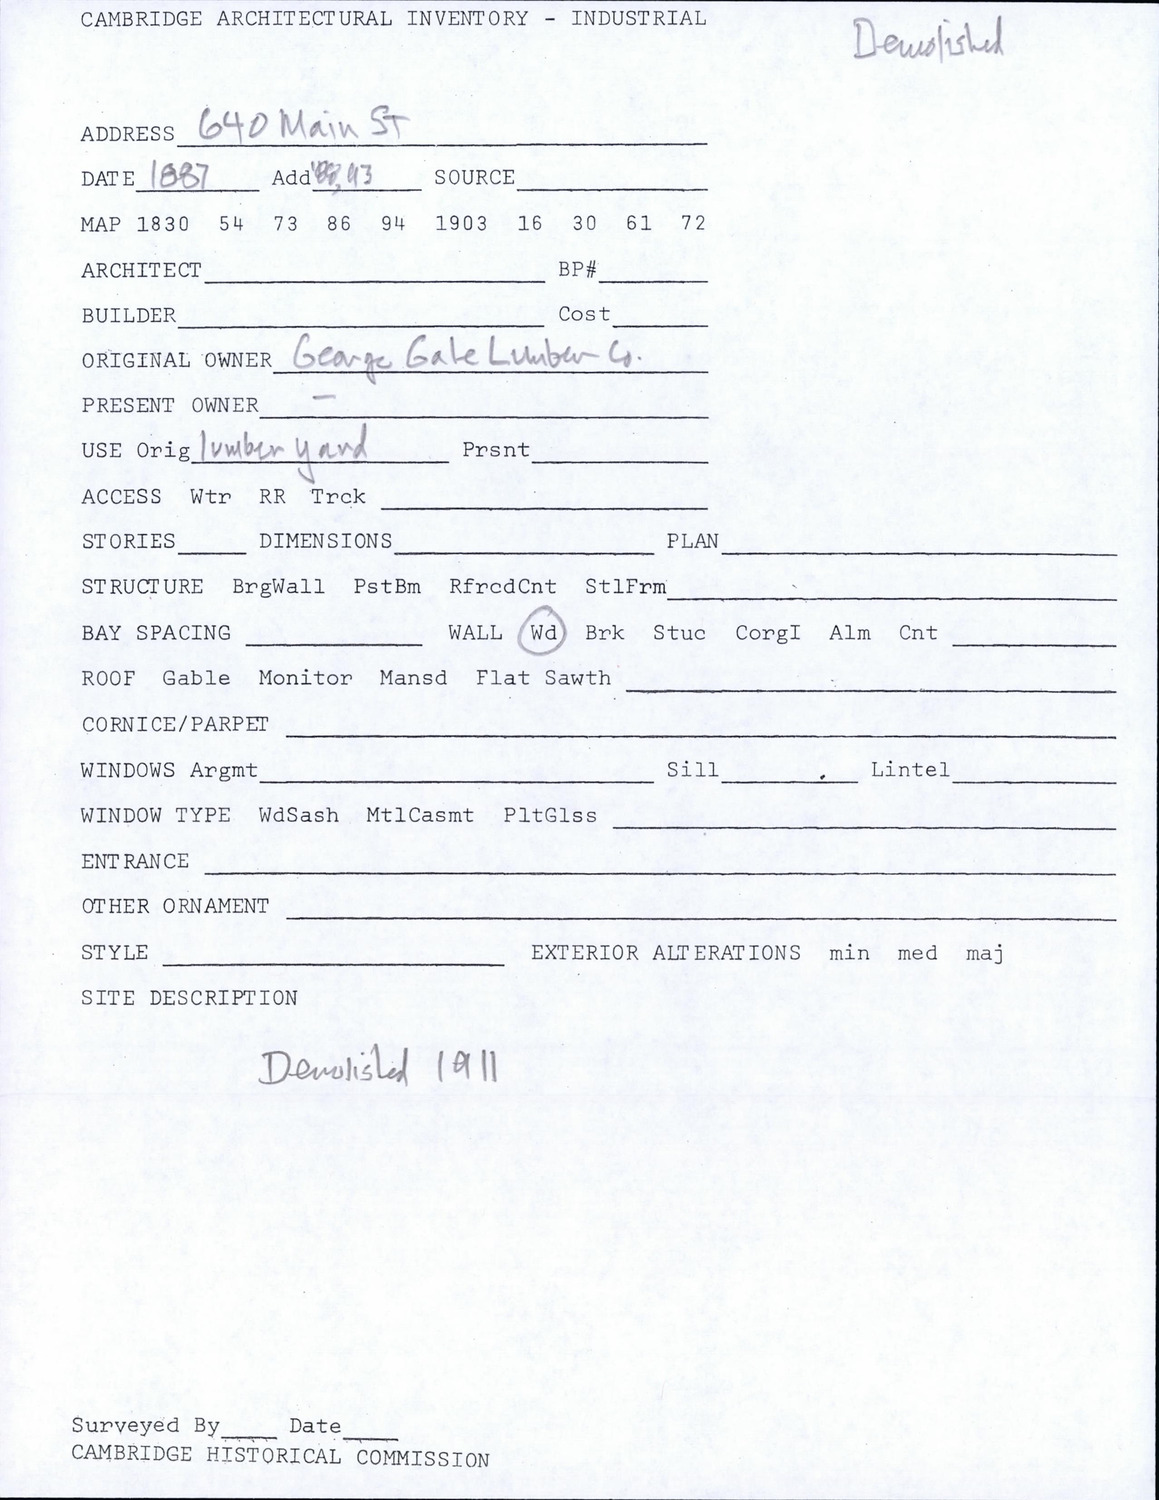 CAMBRIDGE ARCHITECTURAL INVENTORY - INDUSTRIAL
Demolished
ADDRESS 640 Main St
DATE 1887 Add '88, 93 SOURCE
MAP 1830 54 73 86 94 1903 16 30 61 72
ARCHITECT BP#
BUILDER Cost
ORIGINAL OWNER George Gale Lumber Co.
PRESENT OWNER —
USE Orig lumber yard Prsnt
ACCESS Wtr RR Trck
STORIES DIMENSIONS PLAN
STRUCTURE BrgWall PstBm RfrcdCnt StlFrm
BAY SPACING WALL Wd Brk Stuc CorgI Alm Cnt
ROOF Gable Monitor Mansd Flat Sawth
CORNICE/PARPET
WINDOWS Argmt Sill Lintel
WINDOW TYPE WdSash MtlCasmt PltGlss
ENTRANCE
OTHER ORNAMENT
STYLE EXTERIOR ALTERATIONS min med maj
SITE DESCRIPTION
Demolished 1911
Surveyed By Date
CAMBRIDGE HISTORICAL COMMISSION